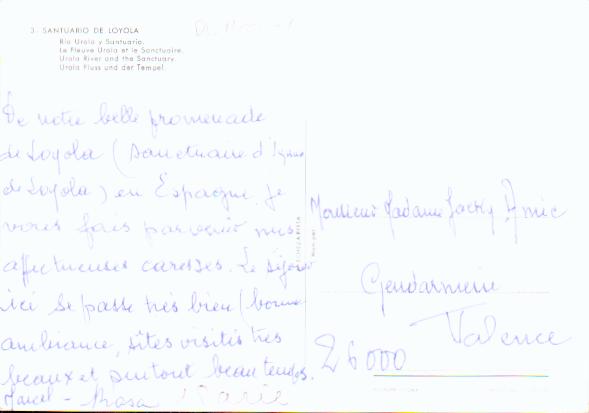 3 - SANTUARIO DE LOYOLA
Río Urola y Santuario.
Le Fleuve Urola et le Sanctuaire.
Urola River and the Sanctuary.
Urola Fluss und der Tempel.
De notre belle promenade
de Loyola (Sanctuaire d'Ignace
de Loyola) en Espagne je
vous fais parvenir mes
affectueuses caresses. Le séjour
ici se passe très bien (bonne
ambiance, sites visités très
beaux et surtout beau temps.
Marcel - Rosa Marie
Monsieur Madame Jacky Amic
Gendarmerie
Valence
26000